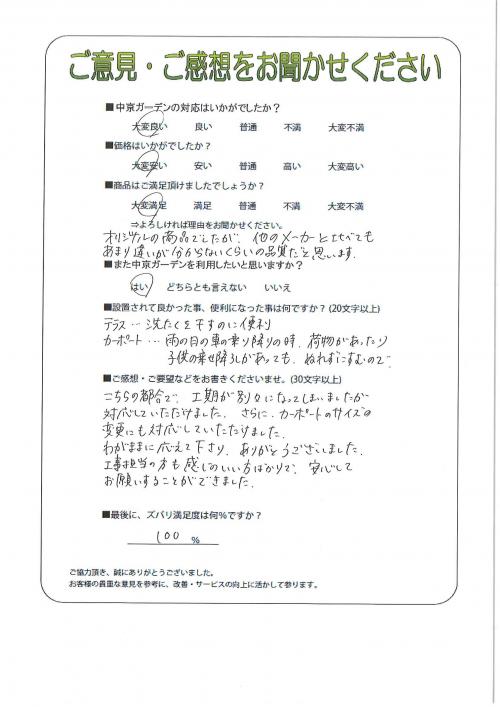 ご意見・ご感想をお聞かせください
■中京ガーデンの対応はいかがでしたか？
大変良い 良い 普通 不満 大変不満
■価格はいかがでしたか？
大変安い 安い 普通 高い 大変高い
■商品はご満足頂けましたでしょうか？
大変満足 満足 普通 不満 大変不満
⇒よろしければ理由をお聞かせください。
オリジナルの商品でしたが、他のメーカーと比べても
あまり違いが分からないくらいの品質だと思います。
■また中京ガーデンを利用したいと思いますか？
はい どちらとも言えない いいえ
■設置されて良かった事、便利になった事は何ですか？(20文字以上)
テラス…洗たくを干すのに便利
カーポート…雨の日の車の乗り降りの時、荷物があったり
子供の乗せ降ろしがあっても、ぬれずにすむので。
■ご感想・ご要望などをお書きくださいませ。(30文字以上)
こちらの都合で、工期が別々になってしまいましたが
対応していただけました。さらに、カーポートのサイズの
変更にも対応していただけました。
わがままに応えて下さり、ありがとうございました。
工事担当の方も感じのいい方ばかりで、安心して
お願いすることができました。
■最後に、ズバリ満足度は何％ですか？
100 ％
ご協力頂き、誠にありがとうございました。
お客様の貴重な意見を参考に、改善・サービスの向上に活かして参ります。